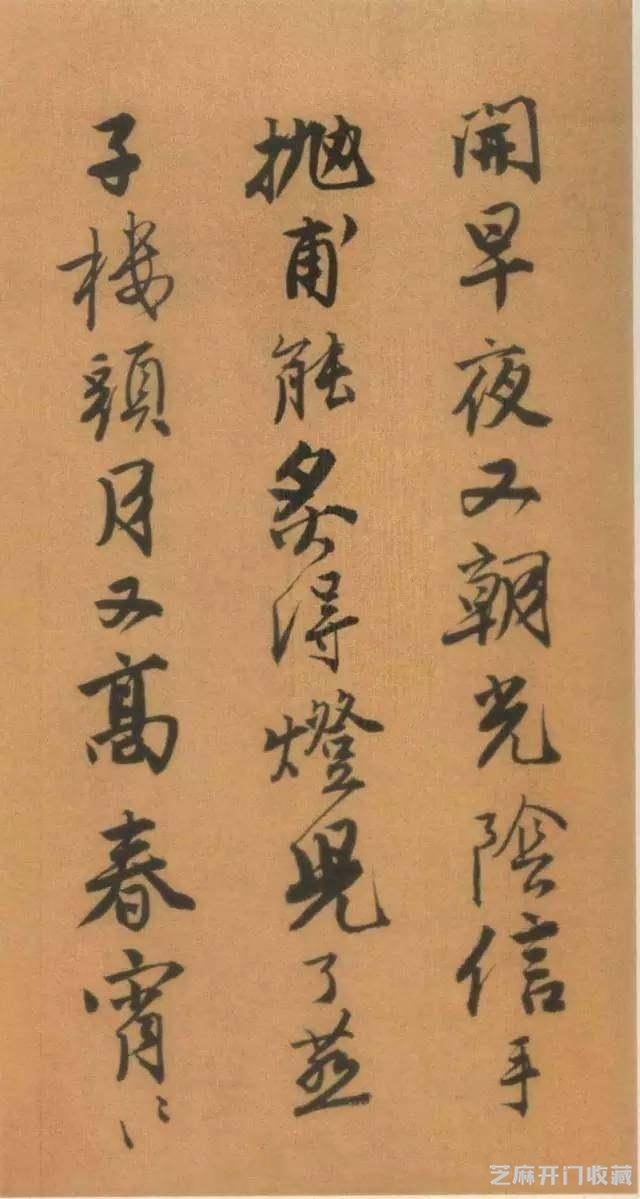 開早夜又朝光陰信手
抛甫能炙得燈兒了燕
子樓頭月又高春宵〻
芝麻开门收藏